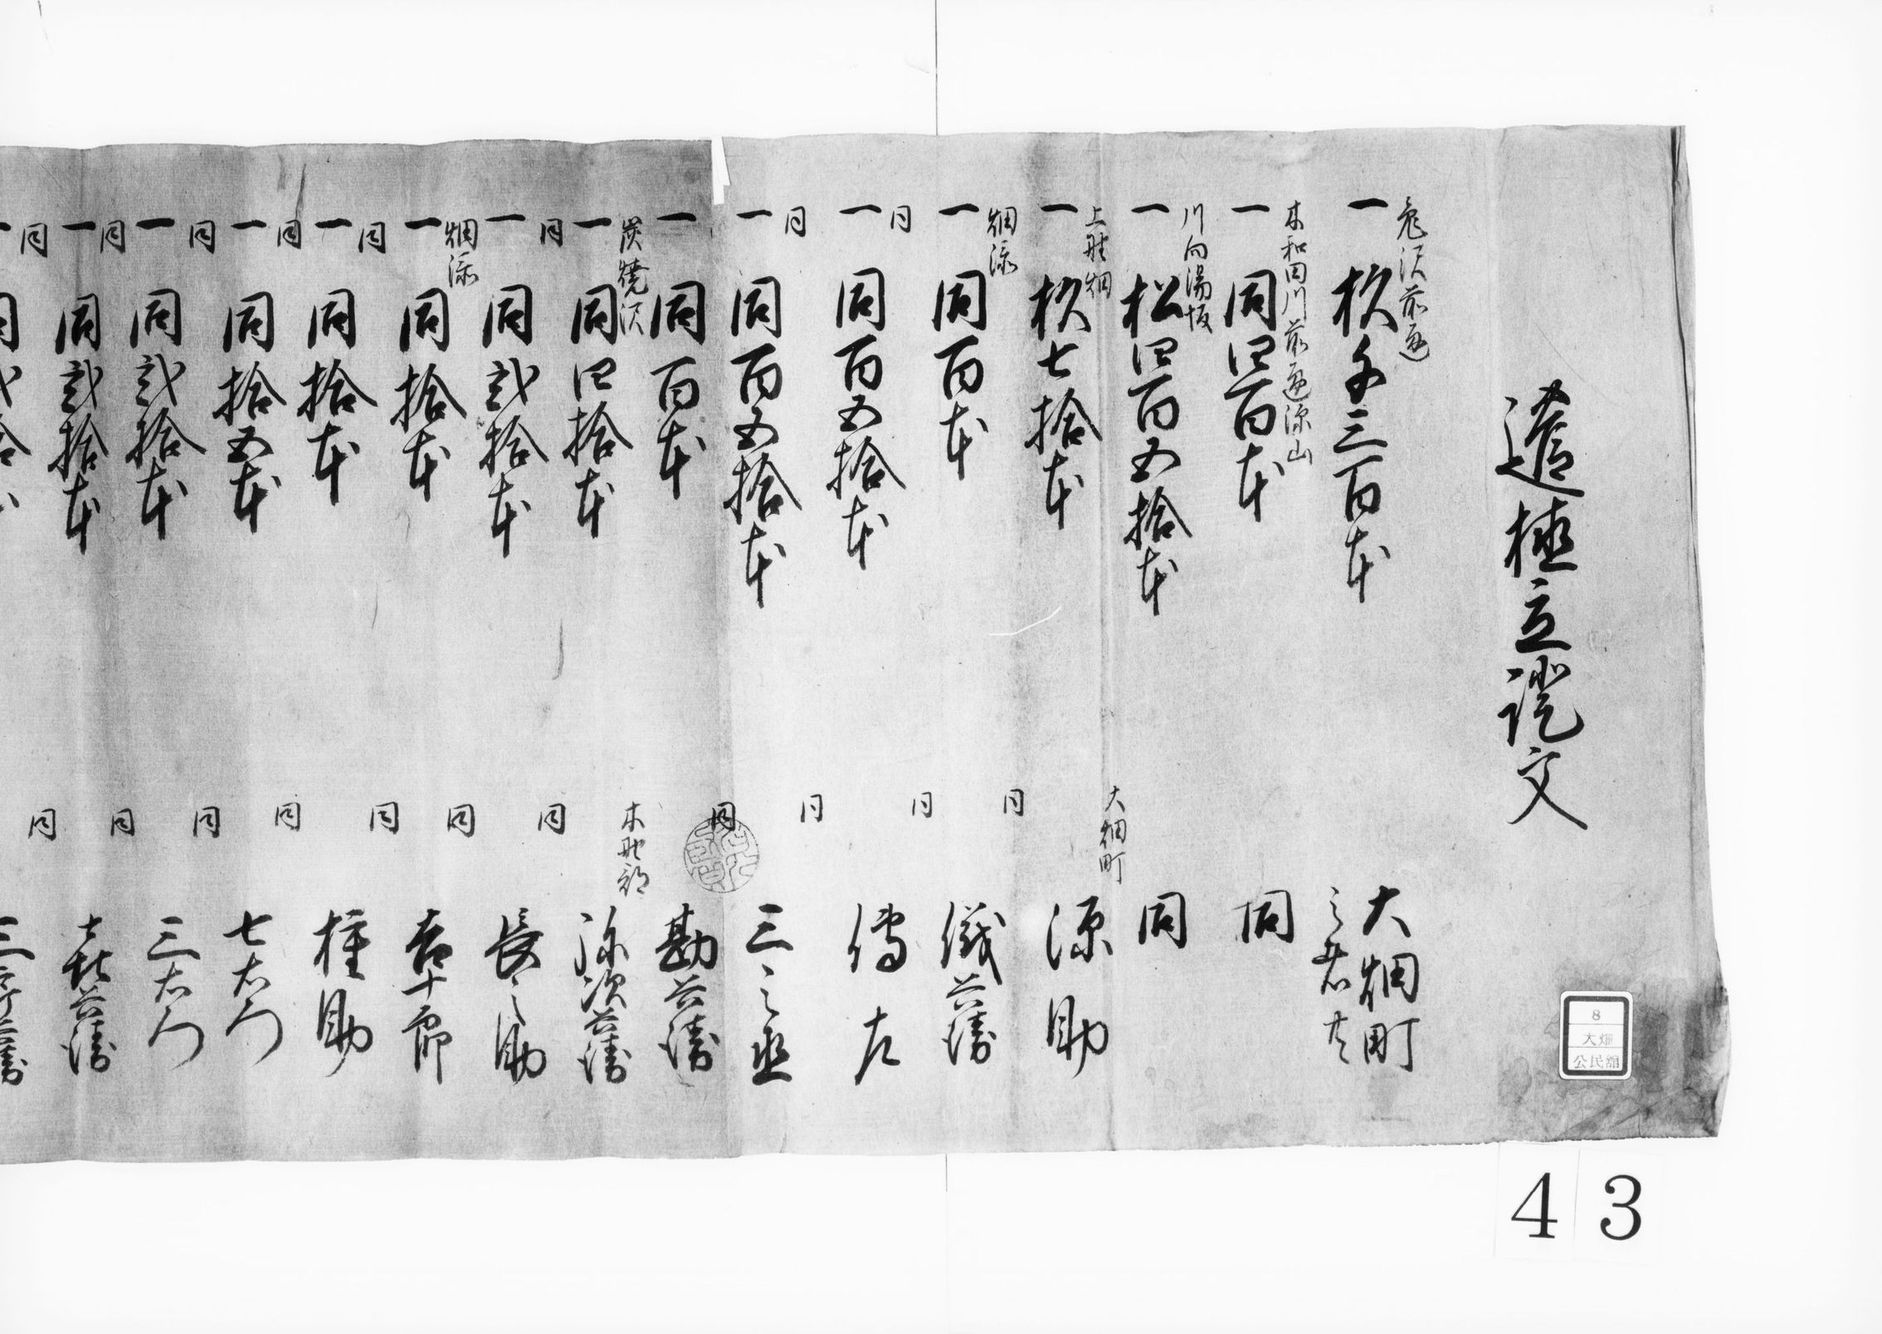 植立證文
一 杉千三百本 大畑町
一 同四百本 同
川向湯坂
一 松四百五拾本 同
上野畑 大畑町
一 杉七拾本 源助
畑添 同
一 同百本 儀兵衛
同 同
一 同百五拾本 傳左
同 同
一 同百五拾本 三之丞
同
一 同百本 勘兵衛
炭焼沢 木野部
一 同四拾本 弥次兵衛
同 同
一 同弐拾本 長之助
畑添 同
一 同拾本 吉十郎
同 同
一 同拾本 権助
同 同
一 同拾五本 七右衛門
同 同
一 同弐拾本 三右衛門
同 同
一 同弐拾本 喜兵衛
同 同
8
大畑
公民館
43